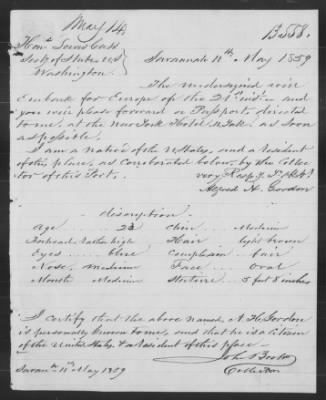 May 14
13558.
Honl. Lewis Cass
Secty of State U.S
Washington.
Savannah 11th May 1859
The undersigned will
Embark for Europe of the 21st inst. and
you will please forward a Passport, directed
to me, at the New York Hotel, N. York, as soon
as possible.
I am a native of the U. States, and a resident
of this place, as corroborated below, by the Collec
tor of this Port.
very Respy
Alfred H. Gordon
discription
Age 23 Chin Medium
Forehead Rather high Hair light brown
Eyes blue Complexion fair
Nose, medium Face Oval
Mouth Medium Stature 5 feet 8 inches
I certify that the above named, A H. Gordon
is personally known to me, and that he is a citizen
of the United States & a resident of this place
John Boston
Collector
Savanh 11th May 1859